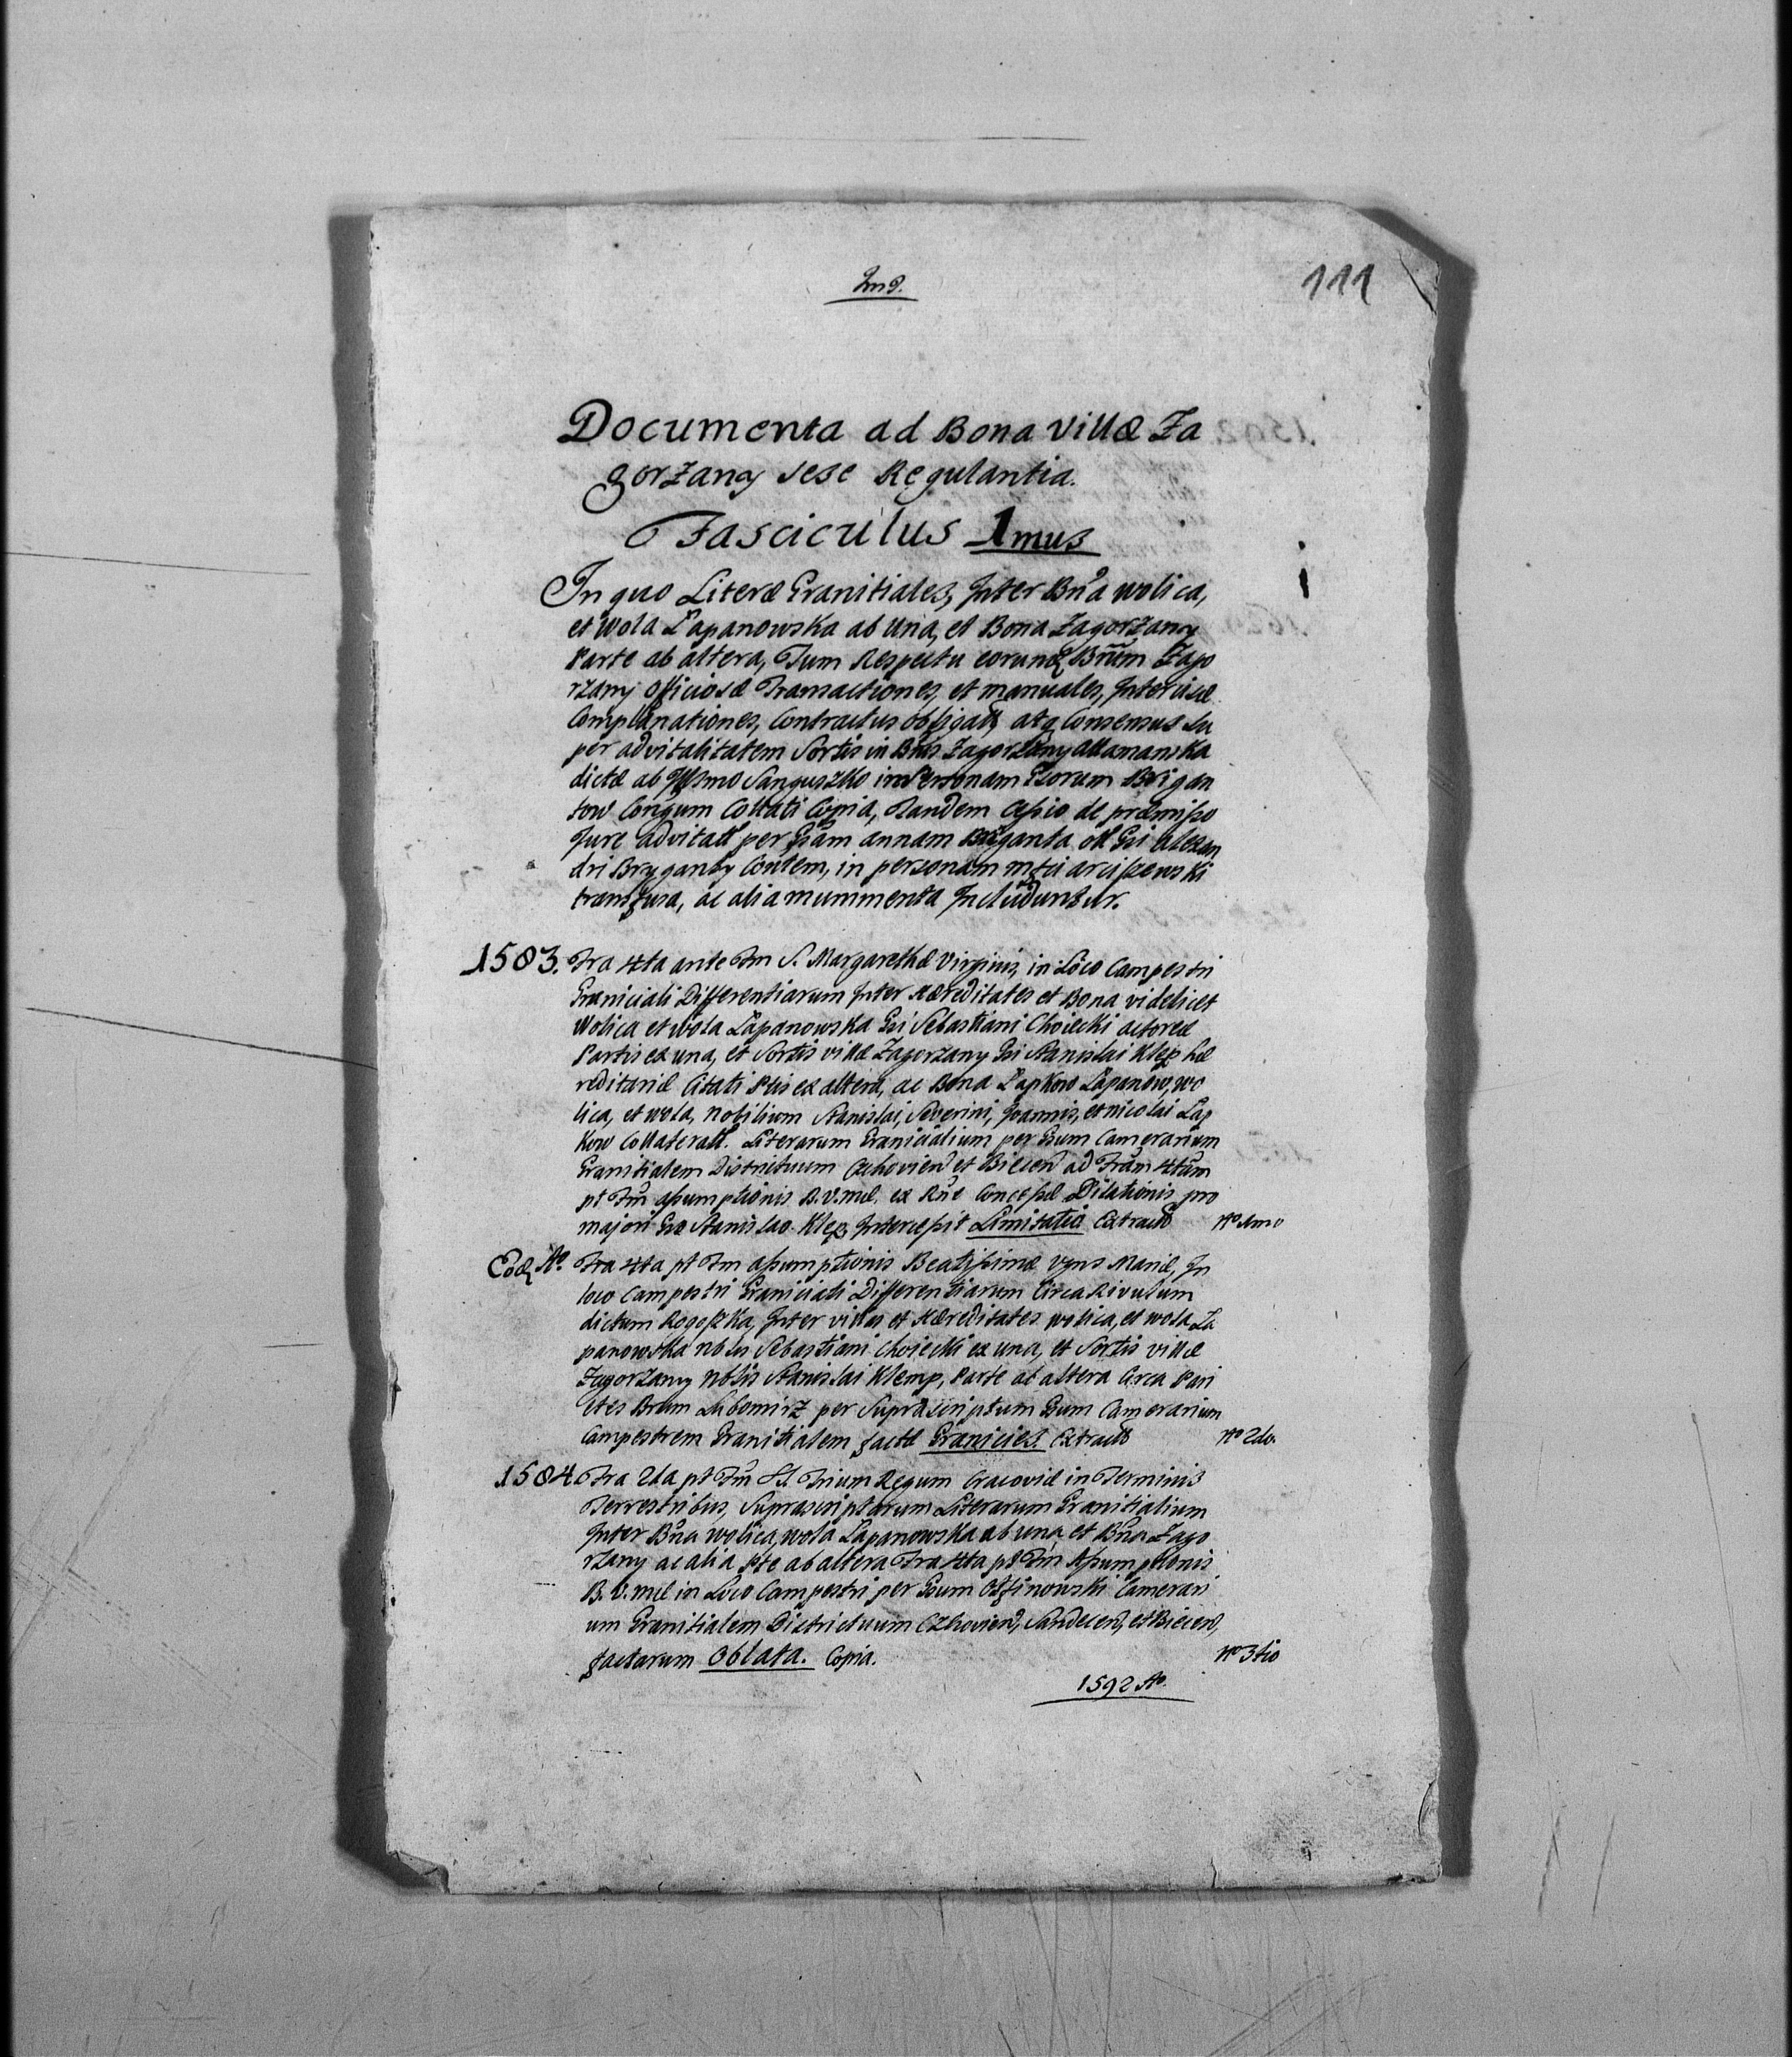 111
Documenta ad Bona villæ Za
gorzany sese Regulantia.
Fasciculus 1mus
In quo Literæ Granitiales, Inter Bna wolica,
et Wola Łapanowska ab una, et Bona Zagorzany
Parte ab altera, Tum Respectu eorund Bnum Zago
rzany officiosæ Transactiones, et manuales, Intercisæ
Complanationes, Contractus obligatt, atq Consensus Su
per advitalitatem Sortis in Bnis Zagorzany Adamanska
dictæ ab Illsmo Sanguszko in Personam Gsorum Brigan
tow Conjgum Collati Copia, Tandem Cessio de præmisso
Jure advitatt per Gsam annam Briganta olt Gsi alexan
dri Bryganty Contem, in personam Mfci arciszewski
transfusa, ac alia mummenta Includuntur.
1583. Fra 4ta ante Fm S. Margarethæ Virginis, in Loco Campestri
Graniciali Differentiarum Inter Hæreditates et Bona videlicet
Wolica et Wola Łapanowska Gsi Sebastiani Choiecki actoreæ
Partis ex una, et Sortis villæ Zagorzany Gsi Stanislai Klęp hæ
reditariæ Citati Ptis ex altera, ac Bona Łapkow Łapanow, wo
lica, et wola, nobilium Stanislai, Severini, Joannis, et nicolai Łap
kow Collateratt. Literarum Granicialium per Gsum Camerarium
Granitialem Districtuum Czchovien et Biecen ad Fram 4tam
pt Fm assumptionis B.V.mæ. ex Rne Concessæ Dilationis pro
majori Gso Stanislao Klęp Intercessit Limitatio Extractt No 1mo
Eod Ao. Fra 4ta pt Fm assumptionis Beatissimæ Vgns Mariæ, In
loco Campestri Graniciali Differentiarum Circa Rivulum
dictum Rogoszka, Inter villas et Hæreditates wolica, et wola Ła
panowska nblis Sebastiani Choiecki ex una, et Sortis villæ
Zagorzany nblis Stanislai Klemp, Parte ab altera Circa Pari
etes Bnum Lubomirz per Suprascriptum Gsum Camerarium
Campestrem Granitialem factæ Granicies. Extractt No 2do.
1584. Fra 2da pt Fm SS. Trium Regum Cracoviæ in Terminis
Terrestribus, Suprascriptarum Literarum Granitialium
Inter Bna wolica, wola Łapanowska ab una et Bna Zago
rzany ac alia Pte ab altera Fra 4ta pt Fm Assumptionis
B.V.mæ in Loco Campestri per Gsum Ossinowski Camerari
um Granitialem Districtuum Czhovien, Sandecen, et Biecen,
factarum Oblata. Copia. No 3tio
1592 Ao.